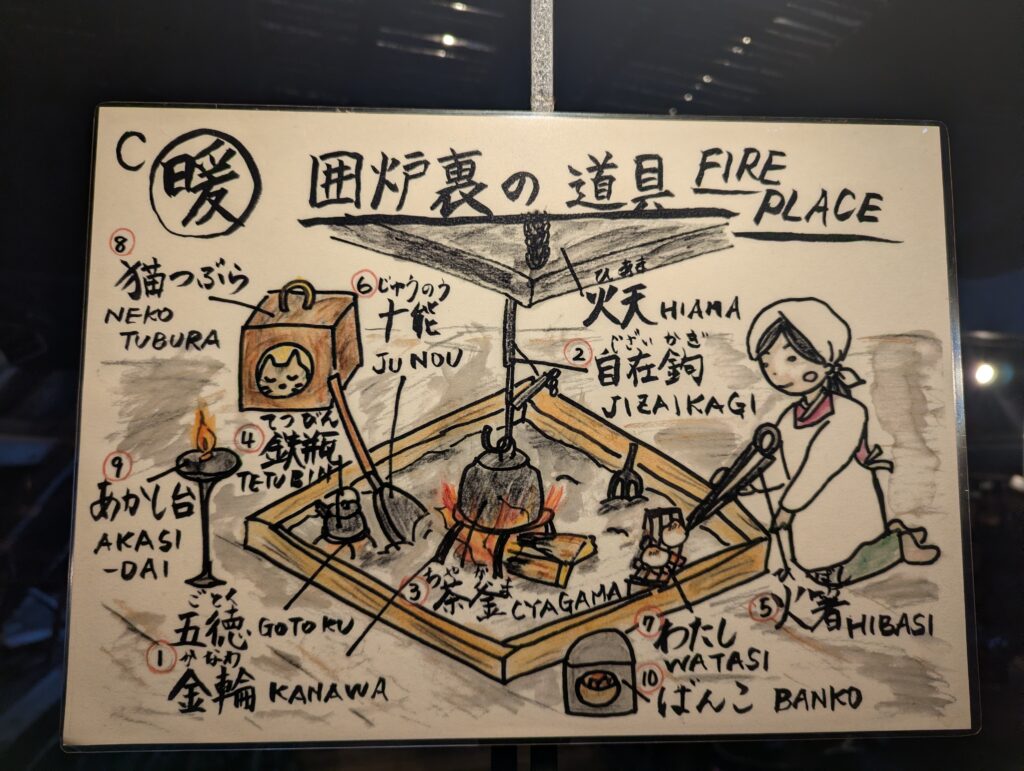 C 暖 囲炉裏の道具 FIRE
PLACE
⑧
猫つぶら
NEKO
TUBURA
⑥じゅうのう
十能
JUNOU
ひあま
火天 HIAMA
ざい かぎ
② 自在鉤
JIZAIKAGI
てつびん
④ 鉄瓶
TETUBIN
⑨
あかし台
AKASI
-DAI
ちゃ が ま
③ 茶釜 CYAGAMA
ごとく
五徳 GOTOKU
① かなわ
金輪 KANAWA
⑤ 火箸 HIBASI
⑦ わたし
WATASI
⑩ ばんこ BANKO